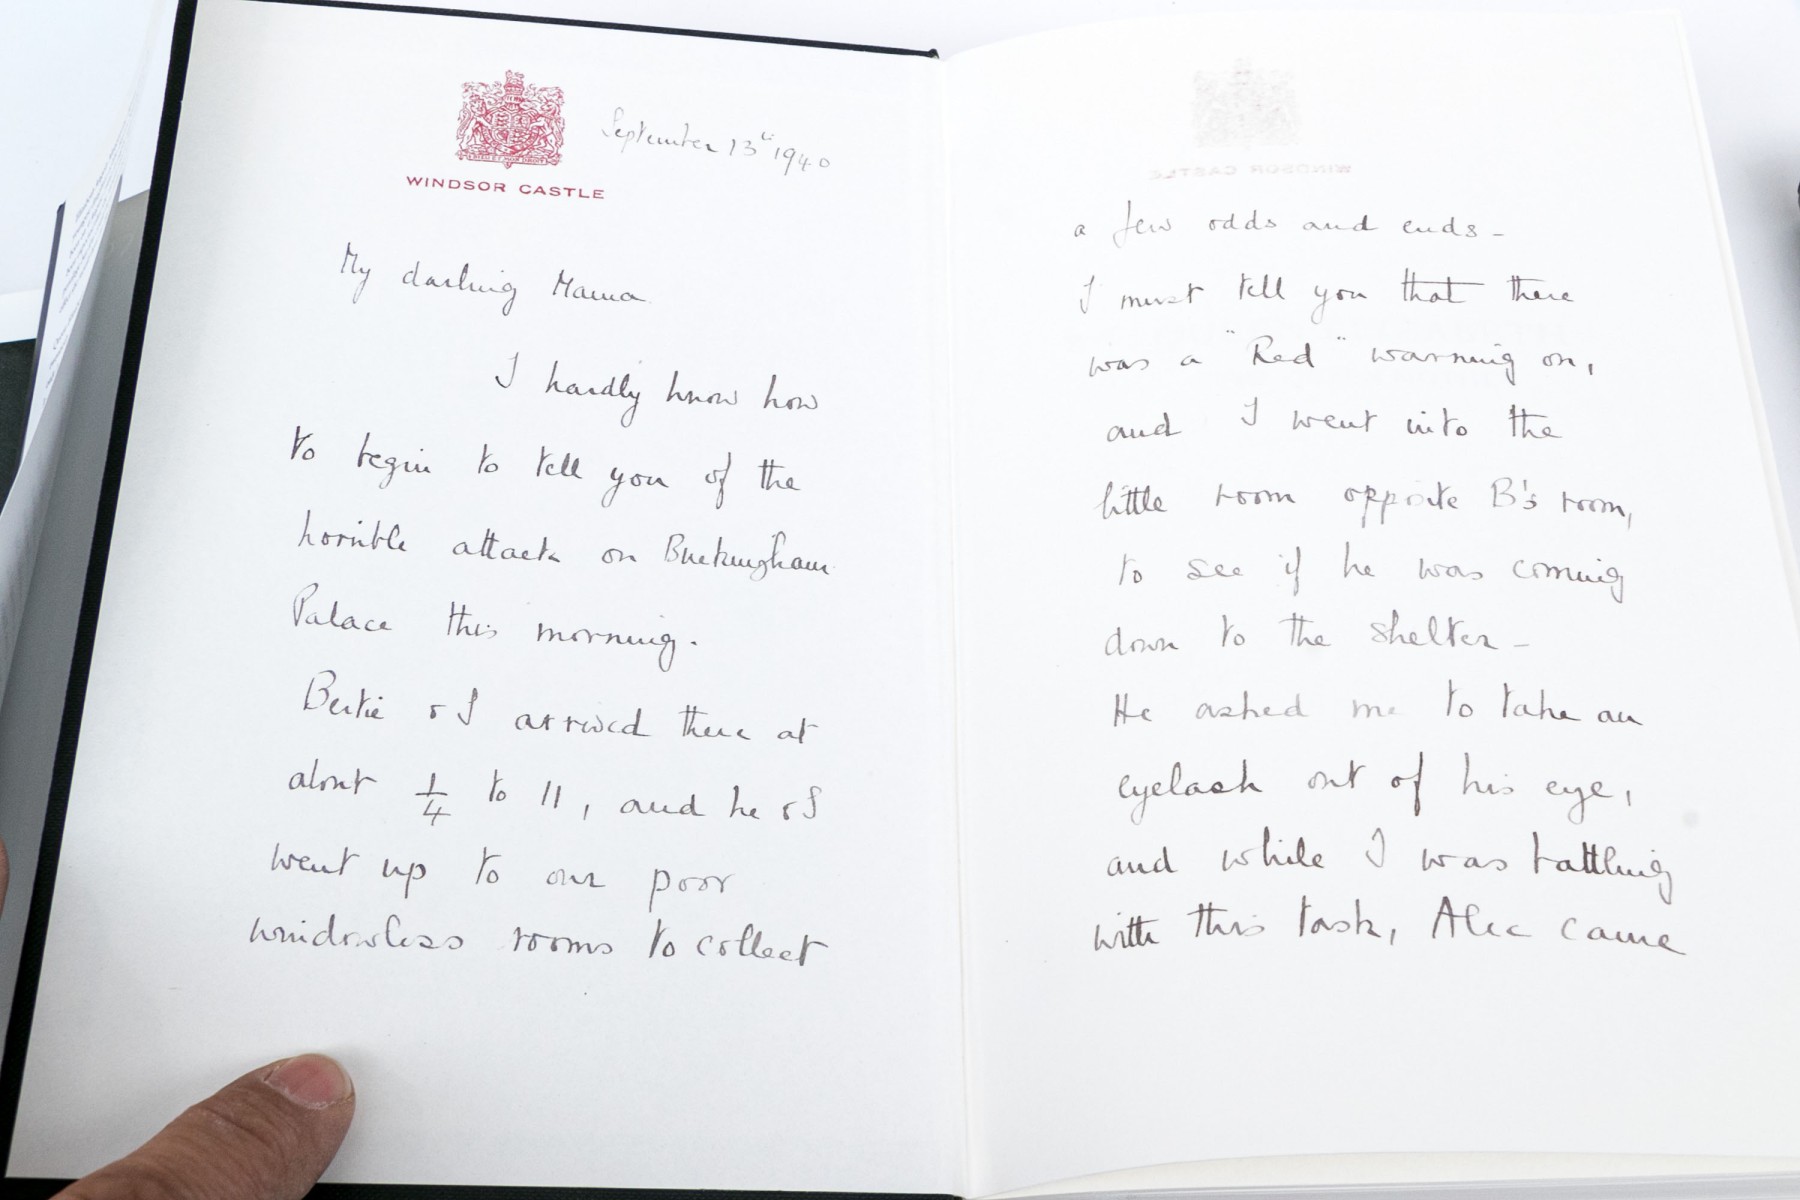 WINDSOR CASTLE
September 13th 1940
My darling Mama
I hardly know how
to begin to tell you of the
horrible attack on Buckingham
Palace this morning.
Bertie & I arrived there at
about 1/4 to 11, and he & I
went up to our poor
windowless rooms to collect
a few odds and ends -
I must tell you that there
was a "Red" warning on,
and I went into the
little room opposite B's room,
to see if he was coming
down to the shelter -
He asked me to take an
eyelash out of his eye,
and while I was battling
with this task, Alec came